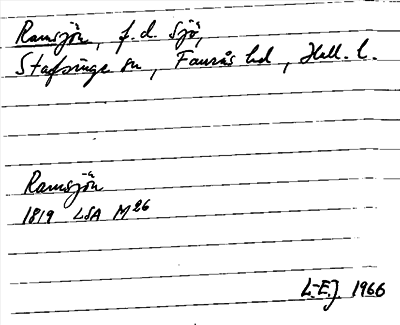 Ramsjön, f.d. Sjö,
Stafsinge sn, Faurås hd, Hall. l.
Ramsjön
1819 LSA M26
L-E.J. 1966